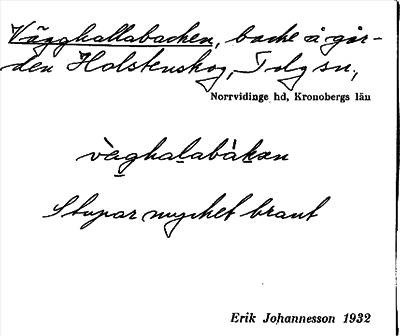 Vägghallabacken, backe å går-
den Holstenskog, Tolg sn.,
Norrvidinge hd, Kronobergs län
væghalabàkən
Stupar mycket brant
Erik Johannesson 1932